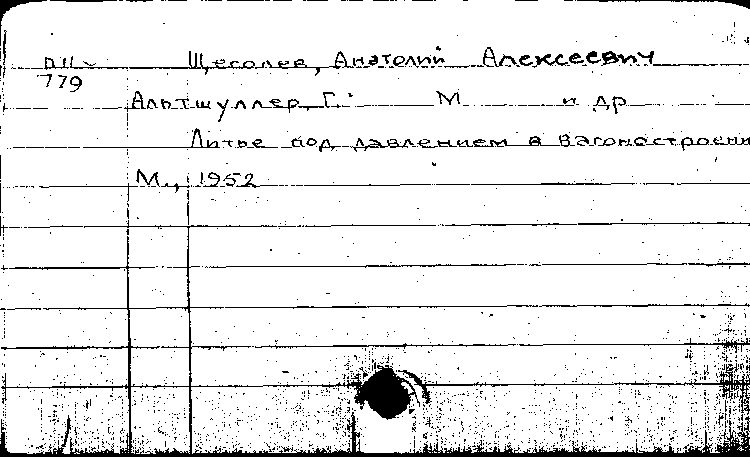 Щеголев, Анатолий Алексеевич
779
Альтшуллер, Г. М и др
Литье под давлением в вагоностроени
М., 1952